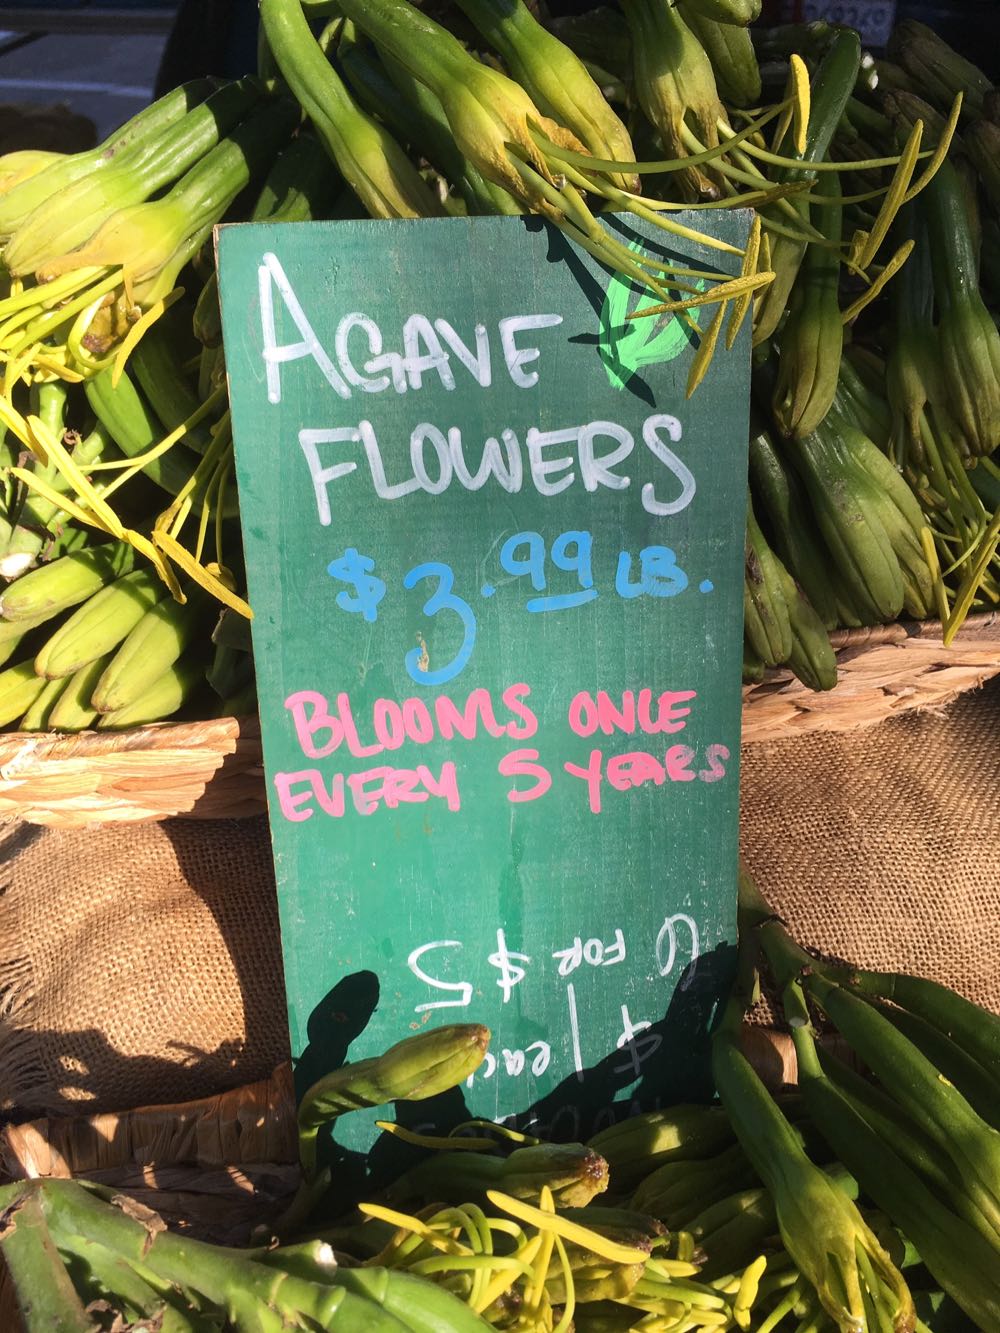 AGAVE
FLOWERS
$3.99 LB.
BLOOMS ONCE
EVERY 5 YEARS
$1 eac
6 FOR $5